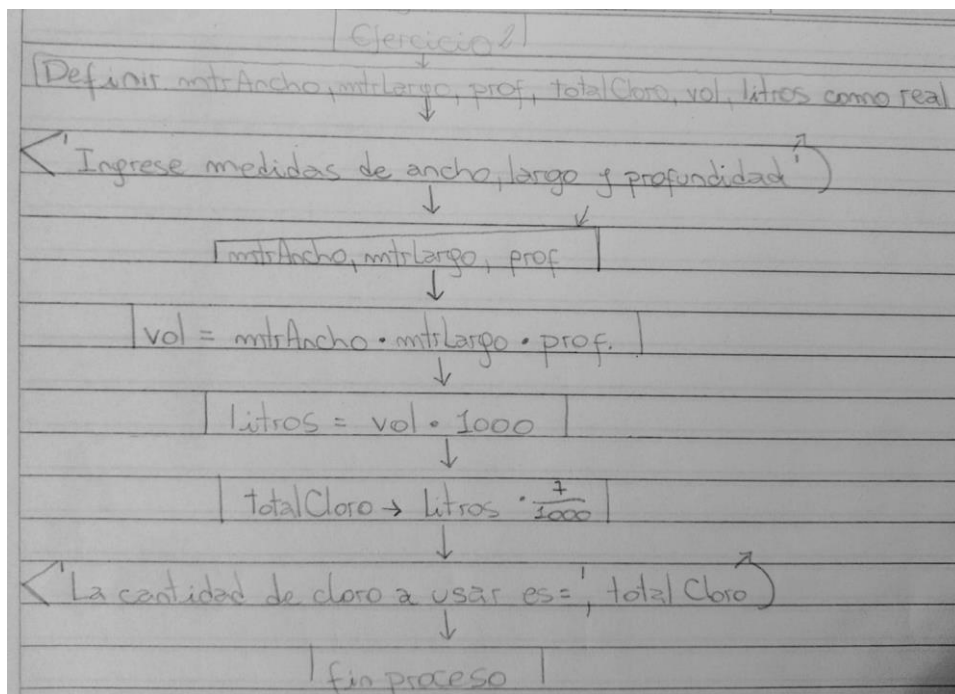 Ejercicio 2
Definir mtrAncho, mtrLargo, prof, totalCloro, vol, litros como real
'Ingrese medidas de ancho, largo y profundidad'
mtrAncho, mtrLargo, prof
vol = mtrAncho · mtrLargo · prof.
litros = vol · 1000
totalCloro → litros · 7/1000
'La cantidad de cloro a usar es=', totalCloro
fin proceso